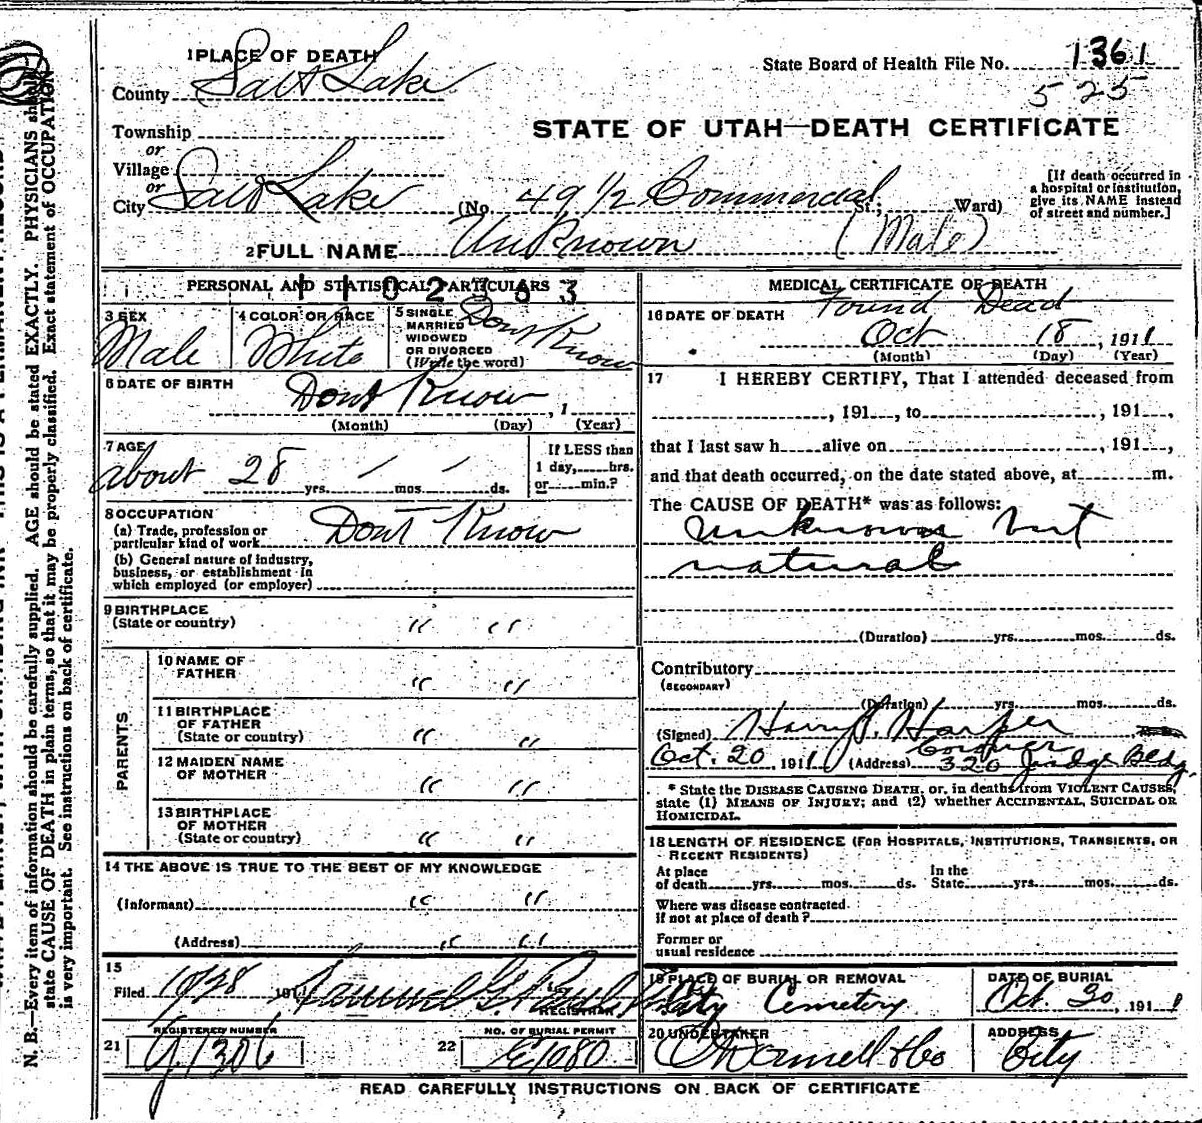 1 PLACE OF DEATH
State Board of Health File No. 1361
525
County Salt Lake
STATE OF UTAH—DEATH CERTIFICATE
Township
or
Village
or
City Salt Lake (No. 49 1/2 Commercial St.; Ward)
[If death occurred in a hospital or institution, give its NAME instead of street and number.]
2 FULL NAME Unknown (Male)
PERSONAL AND STATISTICAL PARTICULARS
1102363
3 SEX
Male
4 COLOR OR RACE
White
5 SINGLE MARRIED WIDOWED OR DIVORCED (Write the word)
Dont Know
6 DATE OF BIRTH
Dont Know, 1
(Month) (Day) (Year)
7 AGE
about 28 yrs. mos. ds.
If LESS than 1 day, hrs. or min.?
8 OCCUPATION
(a) Trade, profession or particular kind of work Dont Know
(b) General nature of industry, business, or establishment in which employed (or employer)
9 BIRTHPLACE (State or country) " "
PARENTS
10 NAME OF FATHER " "
11 BIRTHPLACE OF FATHER (State or country) " "
12 MAIDEN NAME OF MOTHER " "
13 BIRTHPLACE OF MOTHER (State or country) " "
14 THE ABOVE IS TRUE TO THE BEST OF MY KNOWLEDGE
(Informant) " "
(Address) " "
15
Filed 10/28 1911 Samuel G. Paul
REGISTRAR
REGISTERED NUMBER
21 J1306
NO. OF BURIAL PERMIT
22 E1080
MEDICAL CERTIFICATE OF DEATH
Found Dead
16 DATE OF DEATH
Oct 18, 1911
(Month) (Day) (Year)
17 I HEREBY CERTIFY, That I attended deceased from
, 191 , to , 191 ,
that I last saw h alive on , 191 ,
and that death occurred, on the date stated above, at m.
The CAUSE OF DEATH* was as follows:
unknown but
natural
(Duration) yrs. mos. ds.
Contributory
(SECONDARY)
(Duration) yrs. mos. ds.
(Signed) Harry J. Harper
Coroner
Oct. 20, 1911 (Address) 320 Judge Bldg
* State the DISEASE CAUSING DEATH, or, in deaths from VIOLENT CAUSES, state (1) MEANS OF INJURY; and (2) whether ACCIDENTAL, SUICIDAL OR HOMICIDAL.
18 LENGTH OF RESIDENCE (FOR HOSPITALS, INSTITUTIONS, TRANSIENTS, OR RECENT RESIDENTS)
At place of death yrs. mos. ds. In the State yrs. mos. ds.
Where was disease contracted if not at place of death?
Former or usual residence
19 PLACE OF BURIAL OR REMOVAL
City Cemetery
DATE OF BURIAL
Oct. 20, 1911
20 UNDERTAKER
O'Donnell & Co
ADDRESS
City
READ CAREFULLY INSTRUCTIONS ON BACK OF CERTIFICATE
N. B.—Every item of information should be carefully supplied. AGE should be stated EXACTLY. PHYSICIANS should
state CAUSE OF DEATH in plain terms, so that it may be properly classified. Exact statement of OCCUPATION
is very important. See instructions on back of certificate.